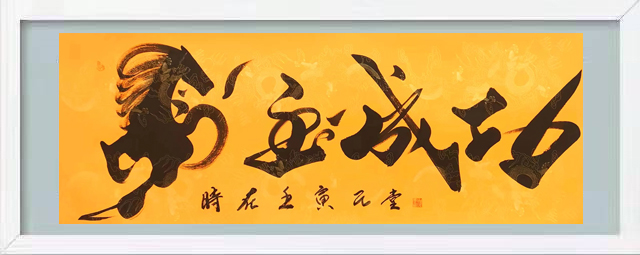 馬到成功
時在壬寅元堂